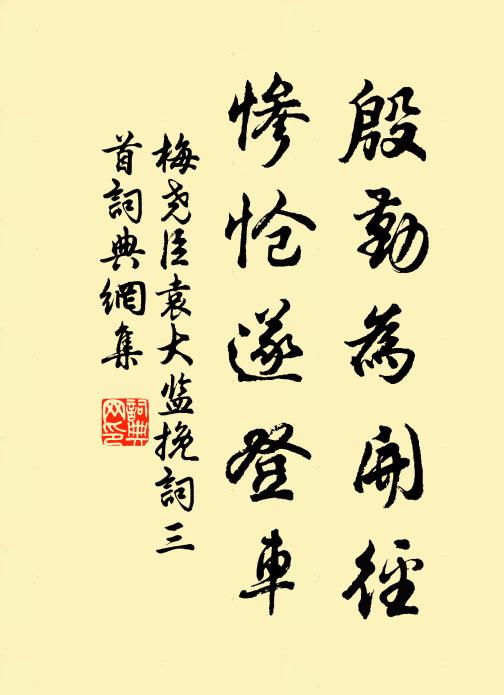 殷勤為開徑
慘愴遂登車
梅堯臣袁大監挽詞三
首詞典網集
詞典
网印